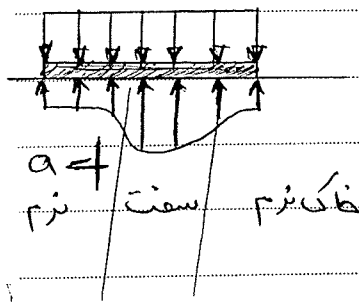 a
خاک نرم سفت نرم